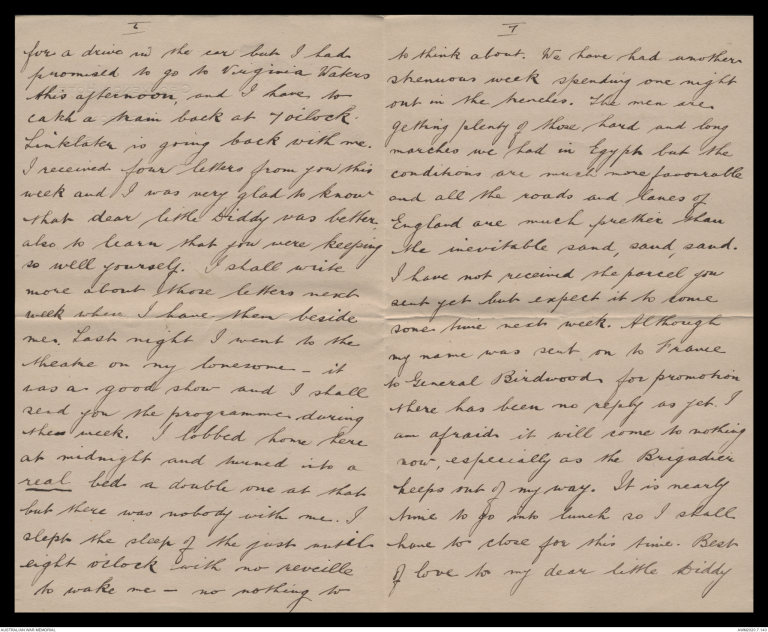 6
for a drive in the car but I had
promised to go to Virginia Waters
this afternoon, and I have to
catch a train back at 7 oclock.
Linklater is going back with me.
I received four letters from you this
week and I was very glad to know
that dear little Diddy was better
also to learn that you were keeping
so well yourself. I shall write
more about those letters next
week when I have them beside
me. Last night I went to the
theatre on my lonesome – it
was a good show and I shall
send you the programme during
the week. I lobbed home here
at midnight and turned into a
real bed a double one at that
but there was nobody with me. I
slept the sleep of the just until
eight o'clock with no reveille
to wake me – no nothing to
7
to think about. We have had another
strenuous week spending one night
out in the trenches. The men are
getting plenty of those hard and long
marches we had in Egypt but the
conditions are much more favourable
and all the roads and lanes of
England are much prettier than
the inevitable sand, sand, sand.
I have not received the parcel you
sent yet but expect it to come
some time next week. Although
my name was sent on to France
to General Birdwood for promotion
there has been no reply as yet. I
am afraid it will come to nothing
now, especially as the Brigadier
keeps out of my way. It is nearly
time to go into lunch so I shall
have to close for this time. Best
of love to my dear little Diddy
AUSTRALIAN WAR MEMORIAL
AWM2020.7.143